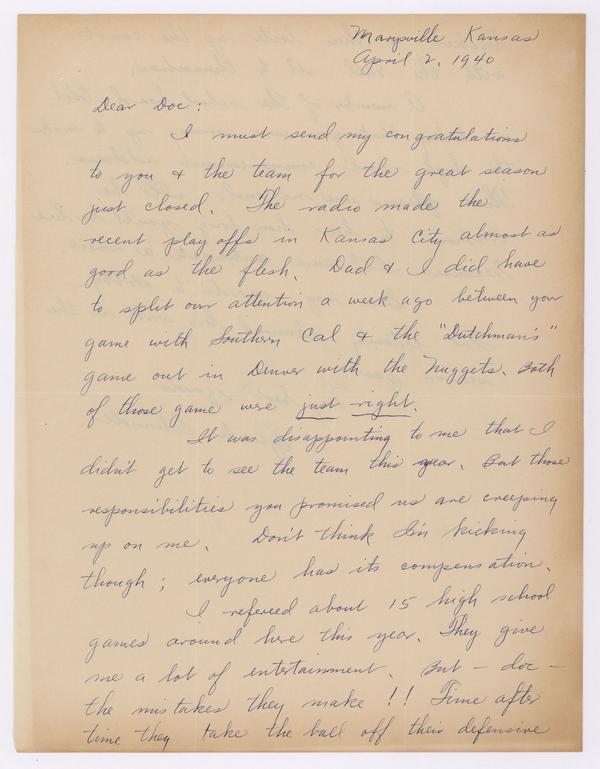 Marysville Kansas
April 2, 1940
Dear Doc:
I must send my congratulations
to you & the team for the great season
just closed. The radio made the
recent play offs in Kansas City almost as
good as the flesh. Dad & I did have
to split our attention a week ago between your
game with Southern Cal & the "Dutchman's"
game out in Denver with the Nuggets. Both
of those game were just right.
It was disappointing to me that I
didn't get to see the team this year. But those
responsibilities you promised us are creeping
up on me. Don't think I'm kicking
though; everyone has its compensation.
I refereed about 15 high school
games around here this year. They give
me a lot of entertainment. But - doc -
the mistakes they make !! Time after
time they take the ball off their defensive